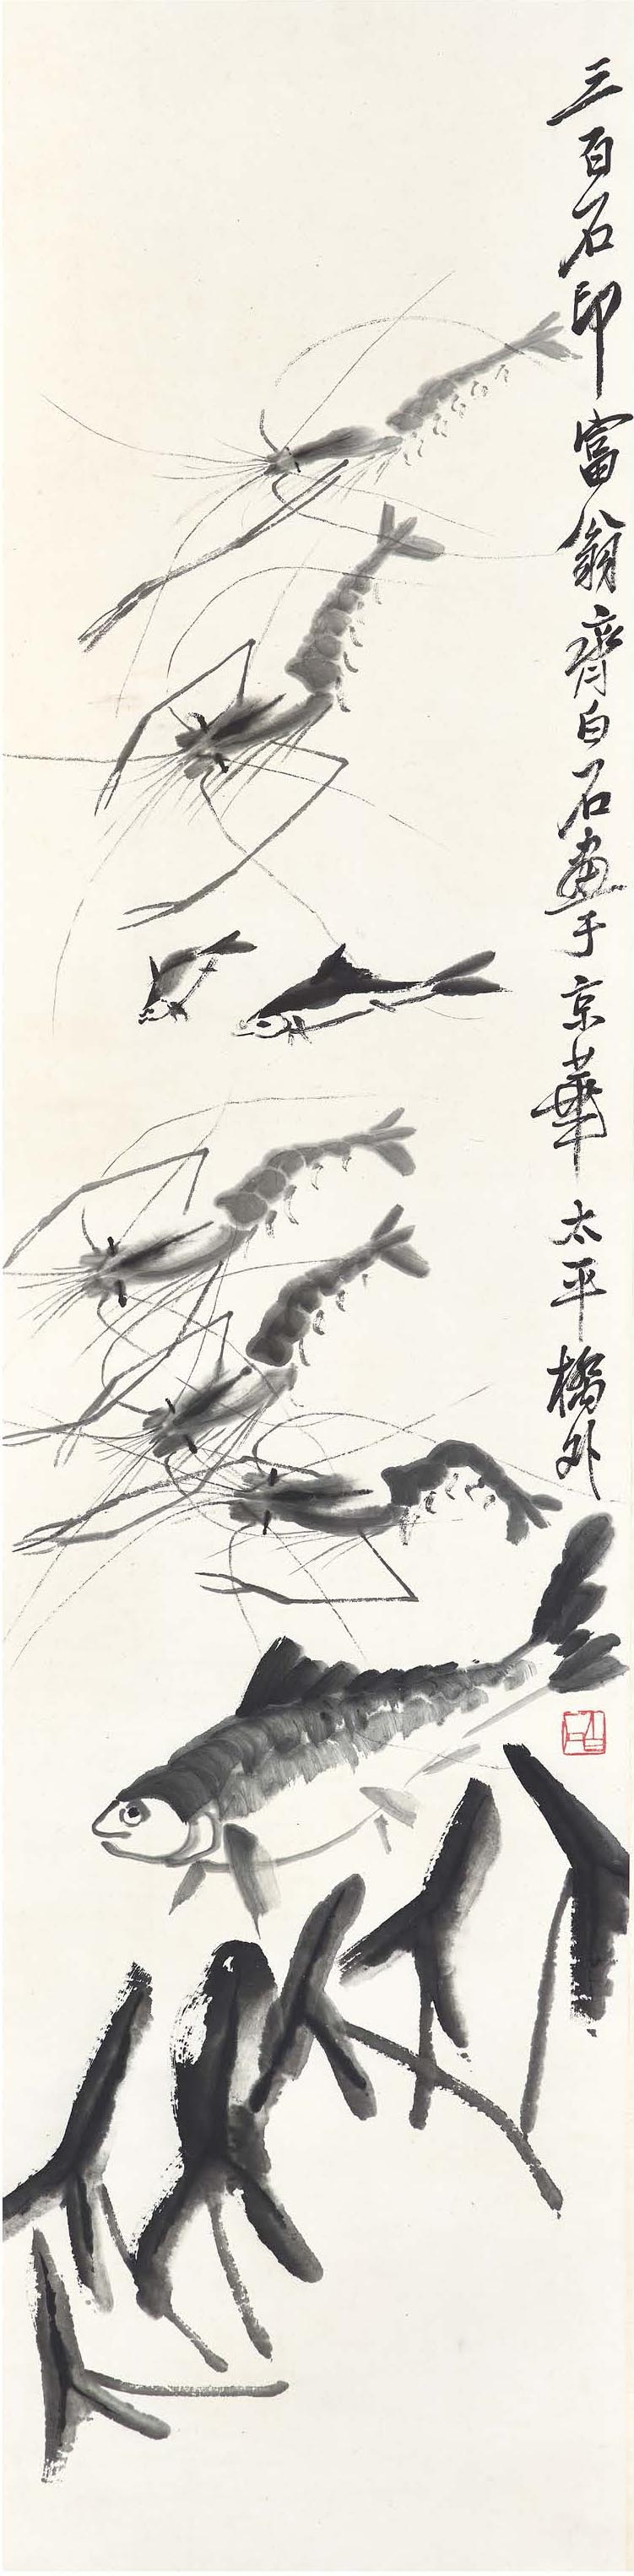 三百石印富翁齊白石畫于京華太平橋外